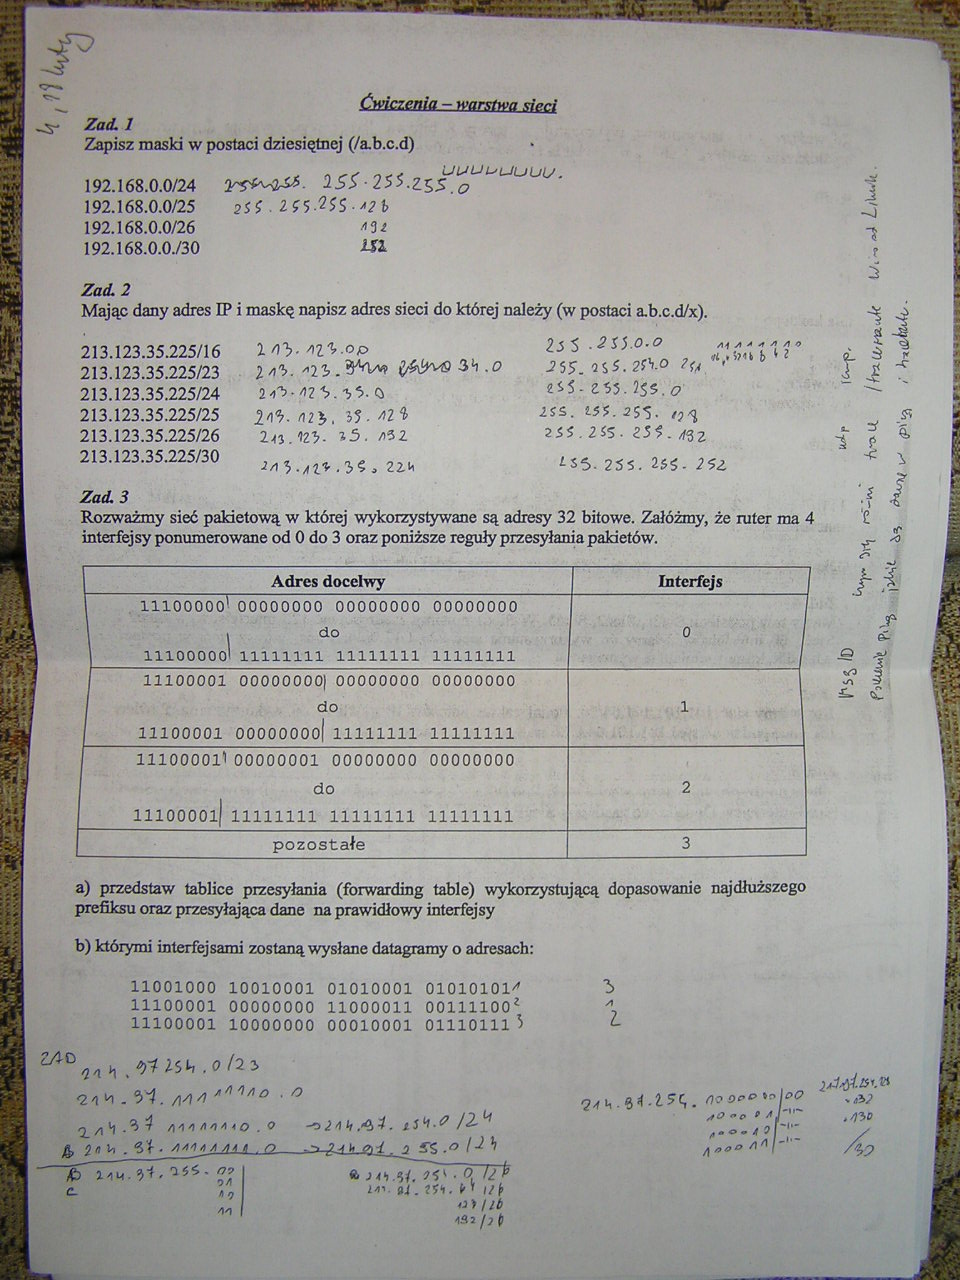 4, 19 luty
Ćwiczenia – warstwa sieci
Zad. 1
Zapisz maski w postaci dziesiętnej (/a.b.c.d)
192.168.0.0/24 255.255.255.0
192.168.0.0/25 255.255.255.128
192.168.0.0/26 192
192.168.0.0./30 252
Zad. 2
Mając dany adres IP i maskę napisz adres sieci do której należy (w postaci a.b.c.d/x).
213.123.35.225/16 213.123.0.0 255.255.0.0 11111110
213.123.35.225/23 213.123. 34.0 255.255.254.0 254
213.123.35.225/24 213.123.35.0 255.255.255.0
213.123.35.225/25 213.123.35.128 255.255.255.128
213.123.35.225/26 213.123.35.192 255.255.255.192
213.123.35.225/30 213.123.35.224 255.255.255.252
Zad. 3
Rozważmy sieć pakietową w której wykorzystywane są adresy 32 bitowe. Załóżmy, że ruter ma 4
interfejsy ponumerowane od 0 do 3 oraz poniższe reguły przesyłania pakietów.
Adres docelwy Interfejs
11100000 00000000 00000000 00000000
do 0
11100000 11111111 11111111 11111111
11100001 00000000 00000000 00000000
do 1
11100001 00000000 11111111 11111111
11100001 00000001 00000000 00000000
do 2
11100001 11111111 11111111 11111111
pozostałe 3
a) przedstaw tablice przesyłania (forwarding table) wykorzystującą dopasowanie najdłuższego
prefiksu oraz przesyłająca dane na prawidłowy interfejsy
b) którymi interfejsami zostaną wysłane datagramy o adresach:
11001000 10010001 01010001 01010101 1 3
11100001 00000000 11000011 00111100 2 1
11100001 10000000 00010001 01110111 3 2
ZAD
214.97.254.0/23
214.97.11111110.0
214.97 11111110.0 →214.97.254.0/24
B 214.97.11111111.0 →214.97.255.0/24
214.97.255. 00
C 01
10
11
214.97.255.0/26
/26
/26
192/26
214.97.254. 100000|00
100001
100010
100011
214.97.254.128
.132
/30
msg ID czym się różni udp icmp